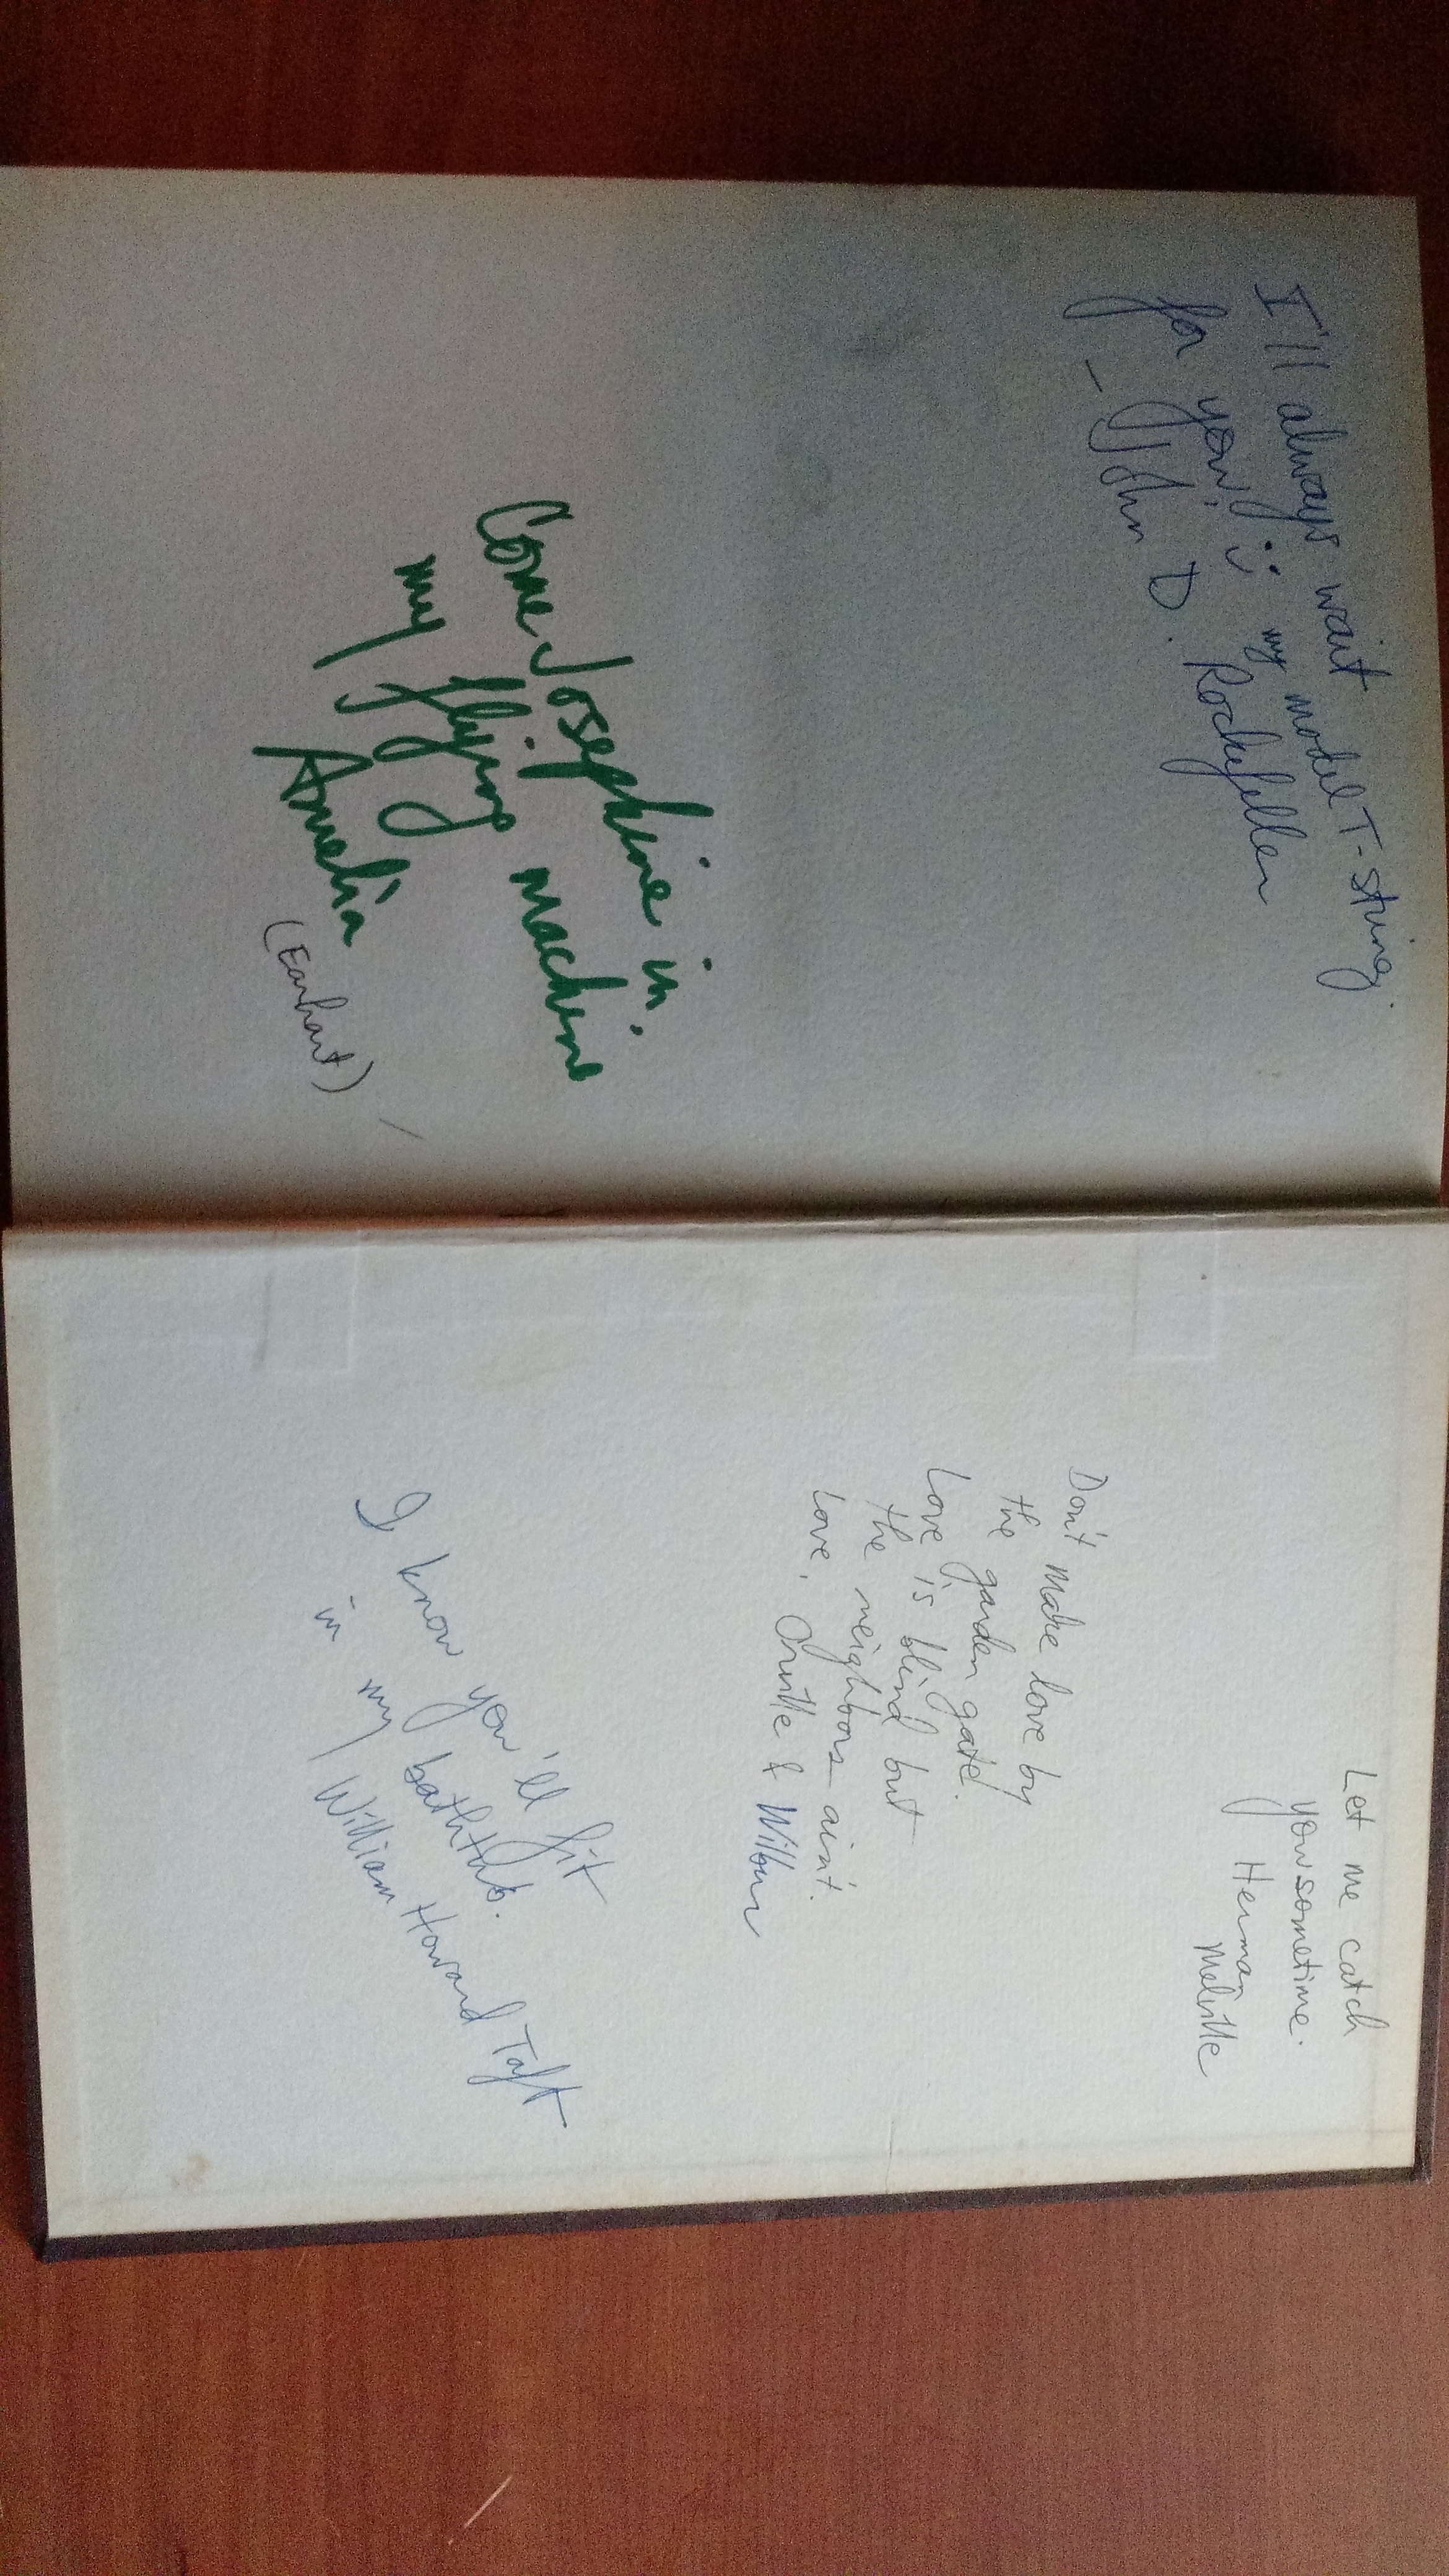 I'll always wait
for you, in my model T-string.
- John D. Rockefeller
Come Josephine in
my flying machine
Amelia
(Earhart)
Let me catch
you sometime.
Herman
Melville
Don't make love by
the garden gate.
Love is blind but
the neighbors ain't.
Love, Orville & Wilbur
I know you'll fit
in my bathtub.
William Howard Taft